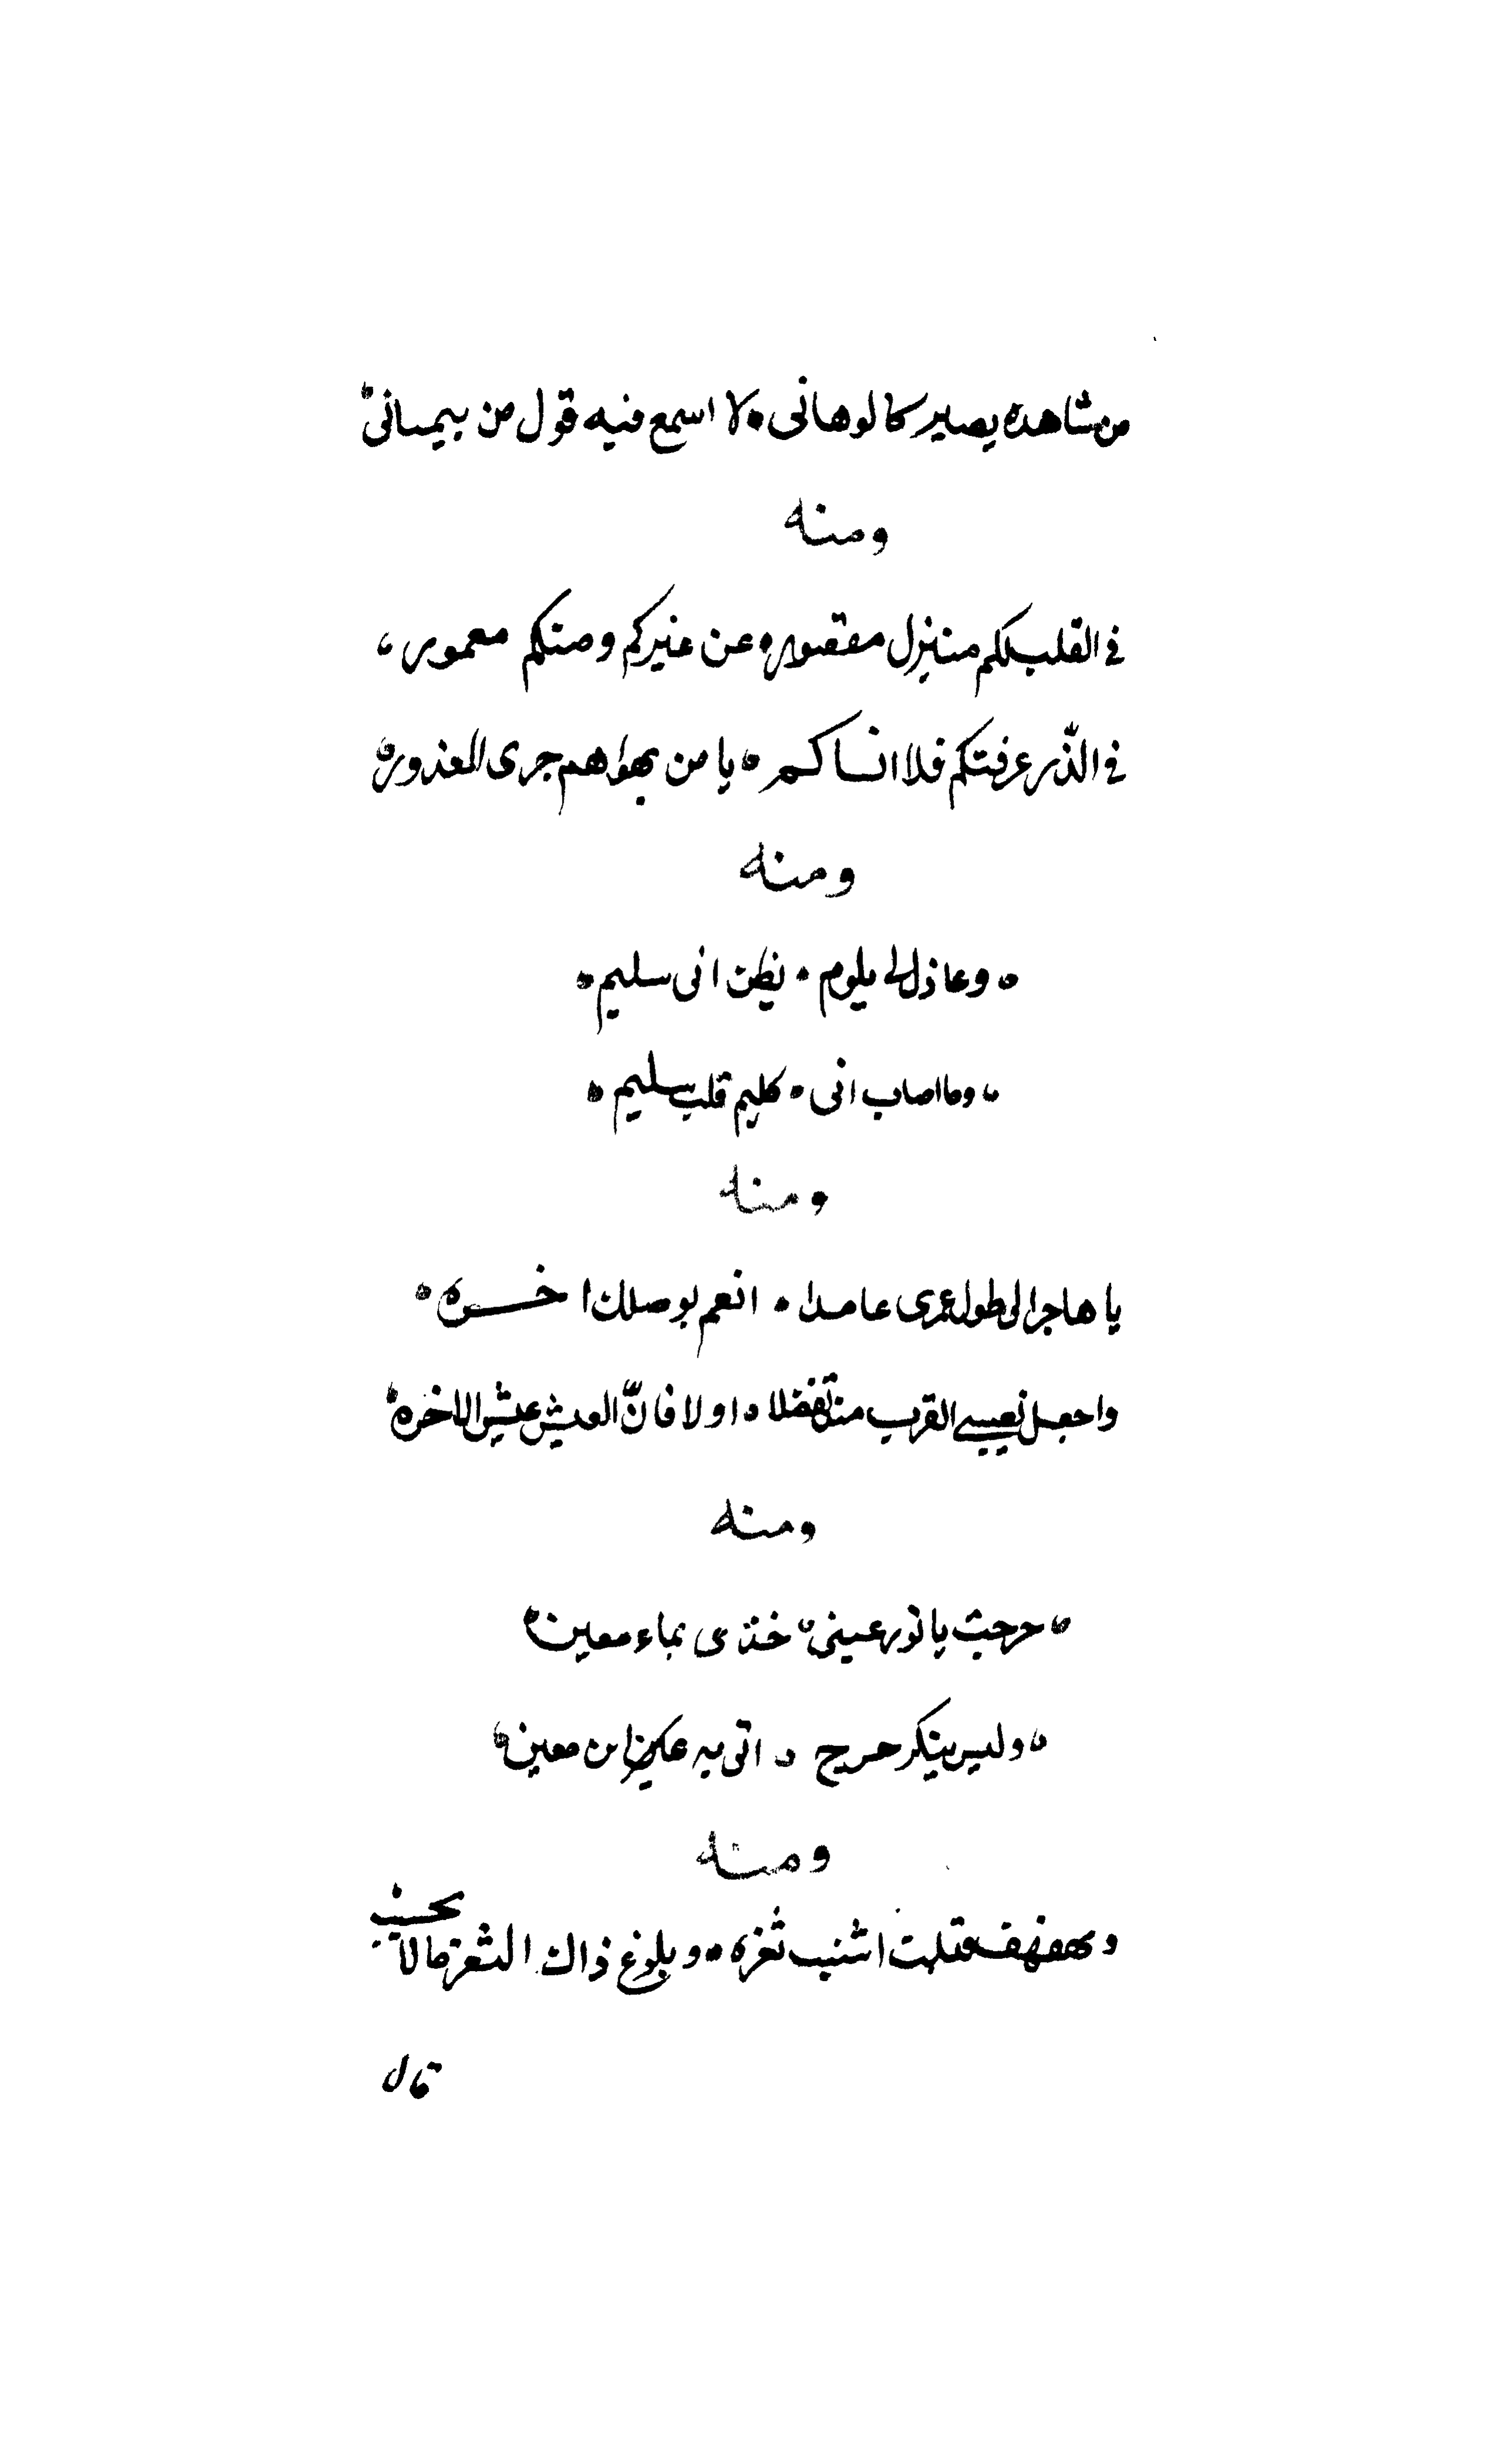 من شاهده يصير كالوهانى ٥ لا اسمع فيه قول من ينسانى ٥
ومنه
فى القلب لكم منزل مقصور ٥ عن غيركم ومنكم معمور ،
فى الذر عرفتكم فلا انساكم ٥ يا من بهواهم جرى المعذور ٥
ومنه
٥ وعاذل لى يلوم ٥ يظن انى سليم ٥
٥ وما اصاب انى ٥ كليم قلب سليم ٥
ومنه
يا هاجرا لى طول عمرى عامدا ٥ انعم بوصلك اخره ٥
واجعل نصيبى القرب منك تفضلا ٥ اولا فانّ العيش عيش الاخره ٥
ومنه
٥ حرجت يا نور عينى ٥ خدى بماء معين ٥
٥ وليس ينكر حرج ٥ اتى به عن ابن معين ٥
ومنه
ومهفهف قبلت اشنب ثغره ٥ وبلوغ ذاك الثغر ما لا يحسب
قال